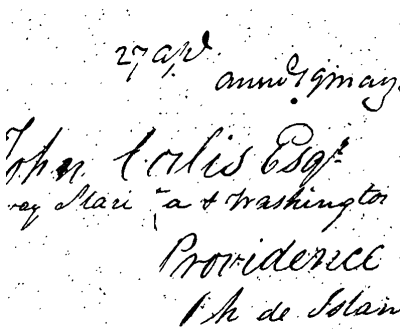 27 apl.
annd 19 may.
John Corlis Esqr
a & Washington
Providence
Rh de Islan